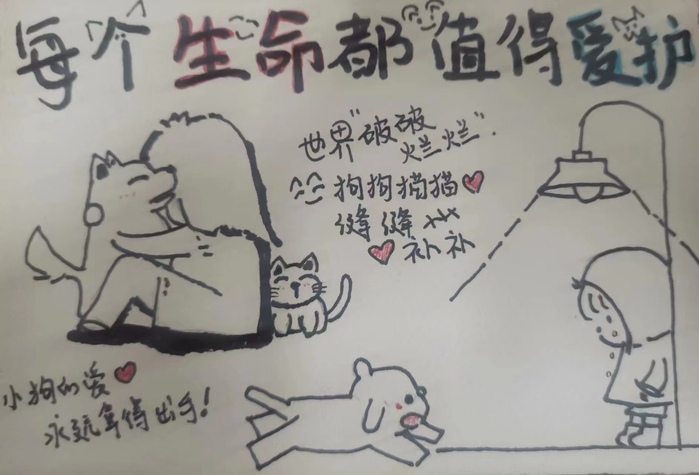 每个生命都值得爱护
世界"破破
烂烂".
狗狗猫猫
缝缝
补补
小狗的爱
永远拿得出手!